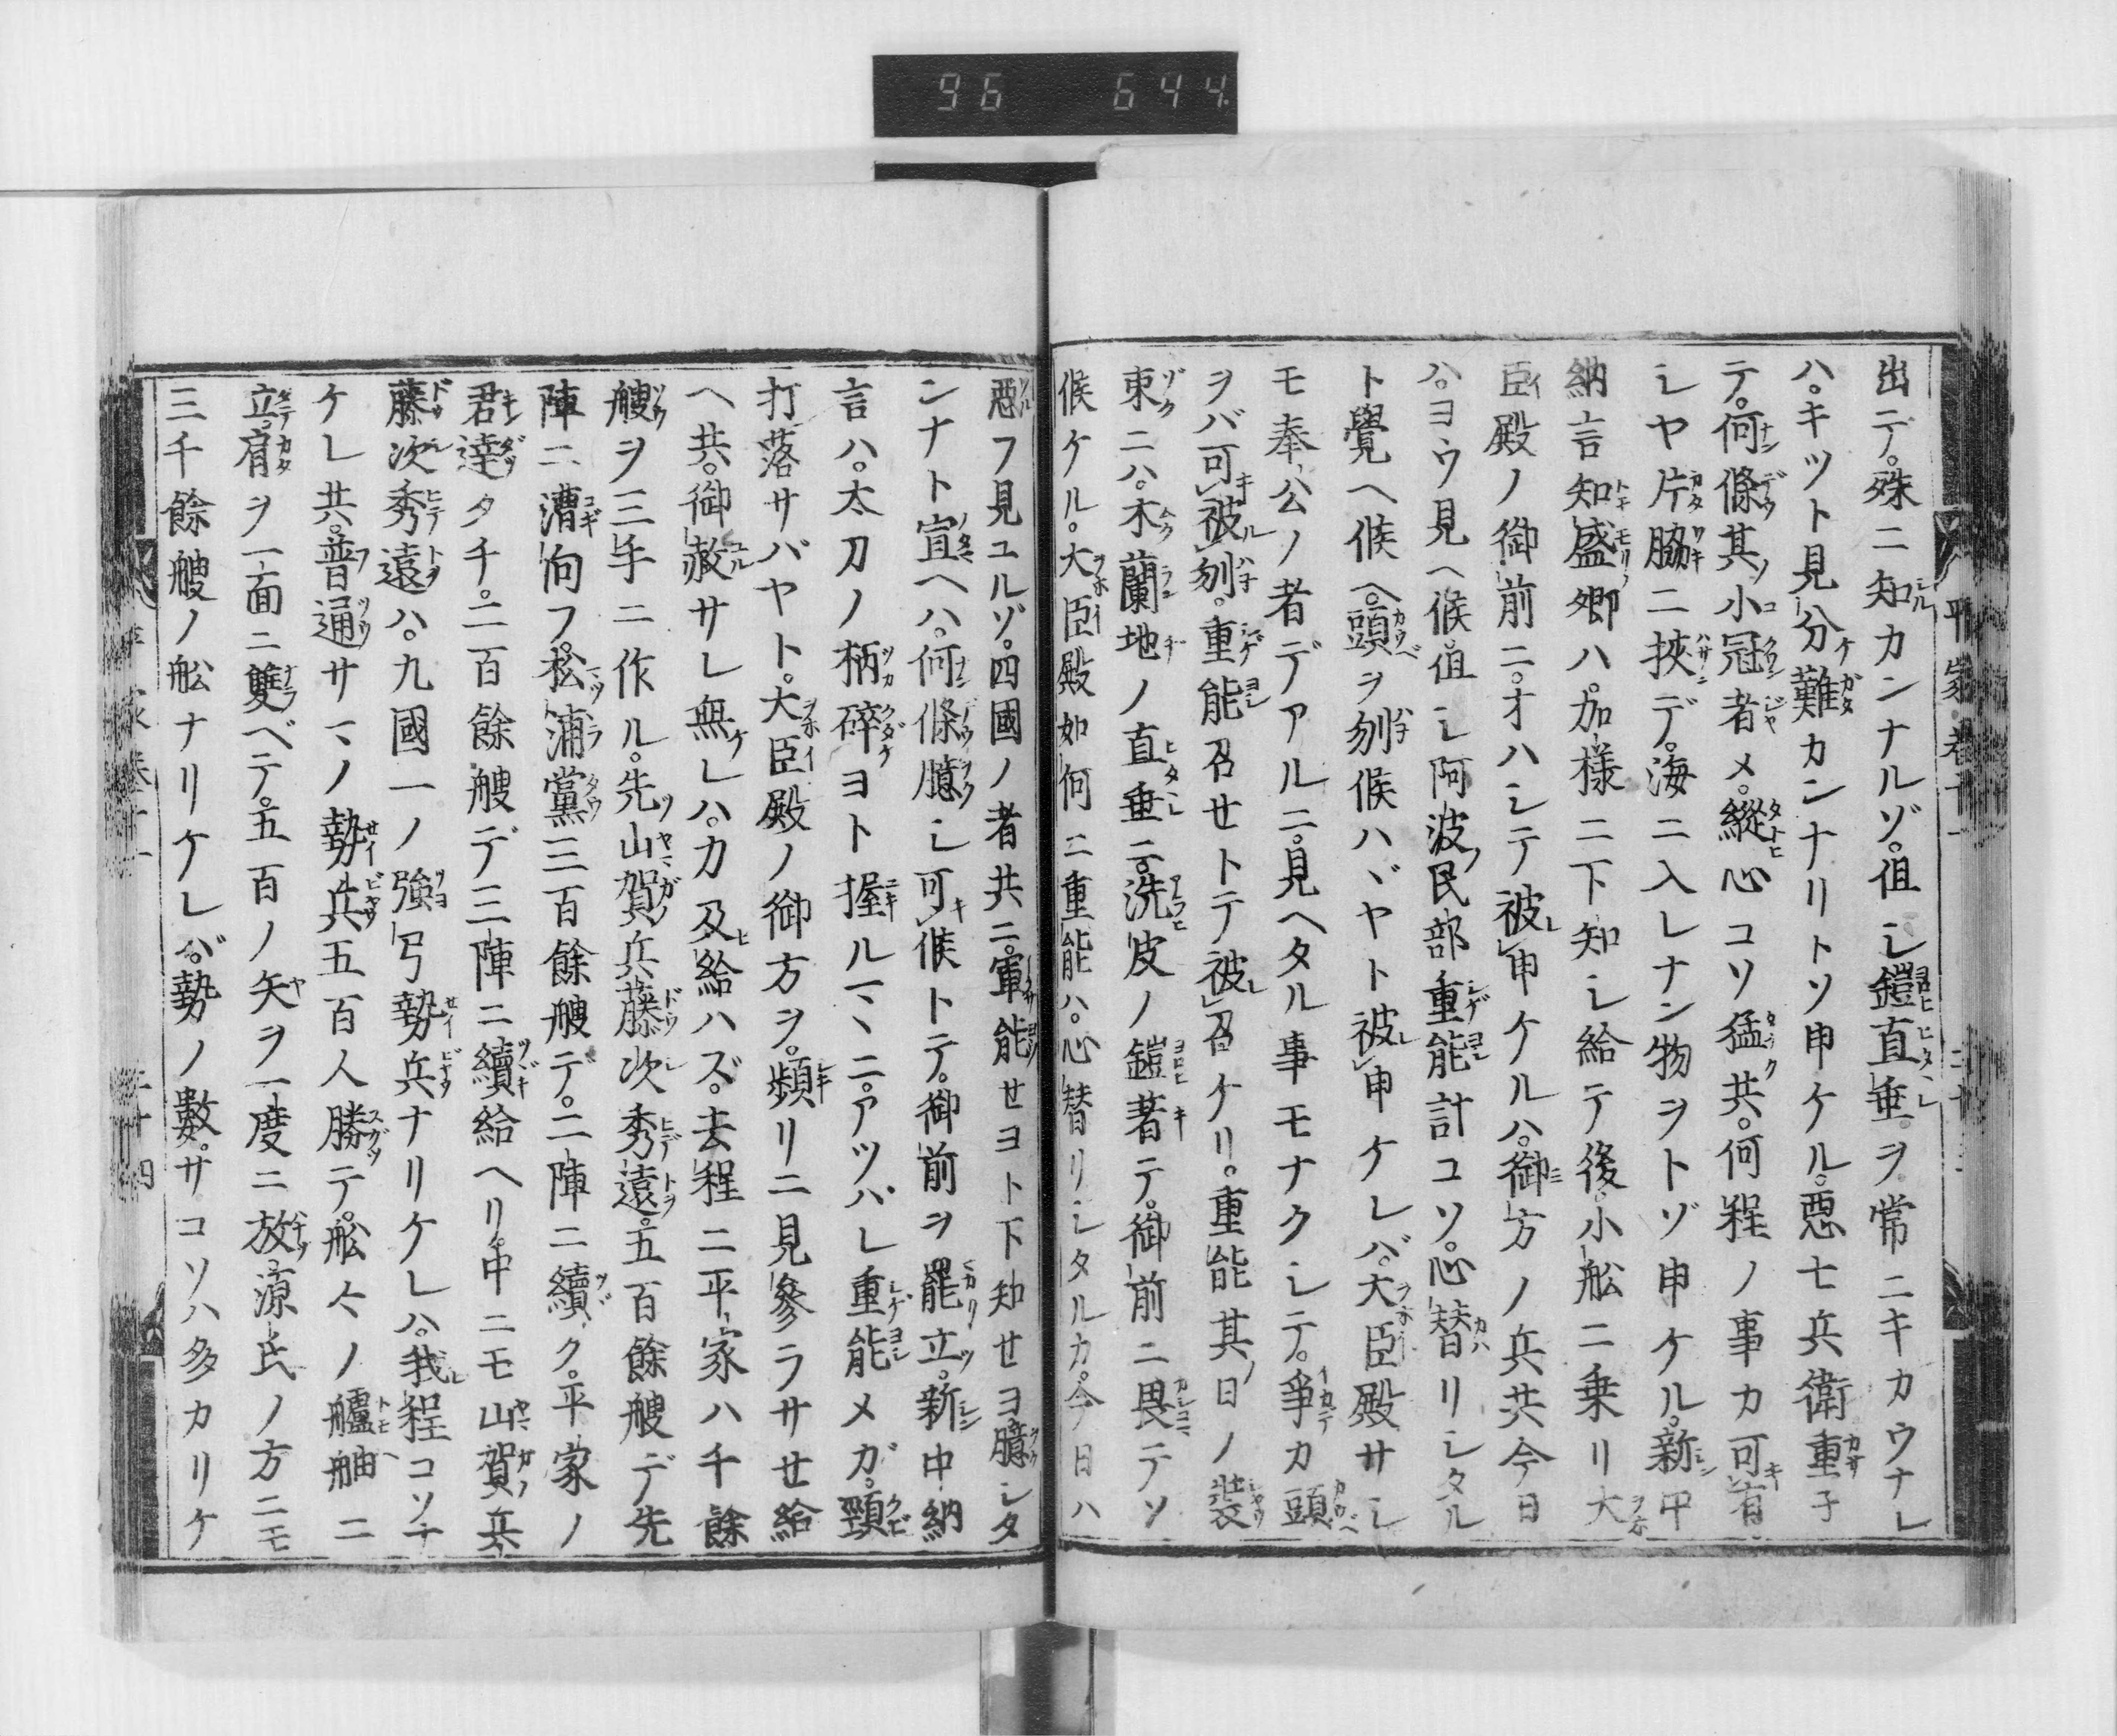 96 644.
出デ。殊ニ知カンナルゾ。但シ鎧直垂。ヲ常ニキカウナレ
ハ。キツト見分難カンナリトソ申ケル。悪七兵衛重子
テ。何條其小冠者メ。縦心コソ猛共。何程ノ事カ可有
シヤ片脇ニ挾デ。海ニ入レナン物ヲトゾ申ケル。新中
納言知盛卿ハ。加様ニ下知シ給テ後。小舩ニ乗リ大
臣殿ノ御前ニ。オハシテ被申ケルハ。御方ノ兵共今日
ハ。ヨウ見ヘ候但シ阿波民部重能計コソ。心替リシタル
ト覺ヘ候ヘ。頭ヲ刎候ハヾヤト被申ケレバ。大臣殿サシ
モ奉公ノ者デアルニ。見ヘタル事モナクシテ。爭カ頭
ヲバ可被刎。重能召セトテ被召ケリ。重能其日ノ裝
束ニハ。木蘭地ノ直垂ニ。洗皮ノ鎧著テ。御前ニ畏テソ
候ケル。大臣殿如何ニ重能ハ。心替リシタルカ。今日ハ
悪フ見ユルゾ。四國ノ者共ニ。軍能セヨト下知セヨ臆シタ
ンナト宣ヘハ。何條臆シ可候トテ。御前ヲ罷立。新中納
言ハ。太刀ノ柄碎ケヨト握ルマヽニ。アツパレ重能メガ。頸
打落サバヤト。大臣殿ノ御方ヲ。頻リニ見參ラサセ給
ヘ共。御赦サレ無レハ。力及給ハズ。去程ニ平家ハ千餘
艘ヲ三手ニ作ル。先山賀兵藤次秀遠。五百餘艘デ先
陣ニ漕向フ。松浦黨三百餘艘デ。二陣ニ續ク。平家ノ
君達タチ。二百餘艘デ三陣ニ續給ヘリ。中ニモ山賀兵
藤次秀遠ハ。九國一ノ強弓勢兵ナリケレハ。我程コソナ
ケレ共。普通サマノ勢兵五百人勝テ。舩々ノ艫舳ニ
立。肩ヲ一面ニ雙ベテ。五百ノ矢ヲ一度ニ放。源氏ノ方ニモ
三千餘艘ノ舩ナリケレバ。勢ノ數。サコソハ多カリケ